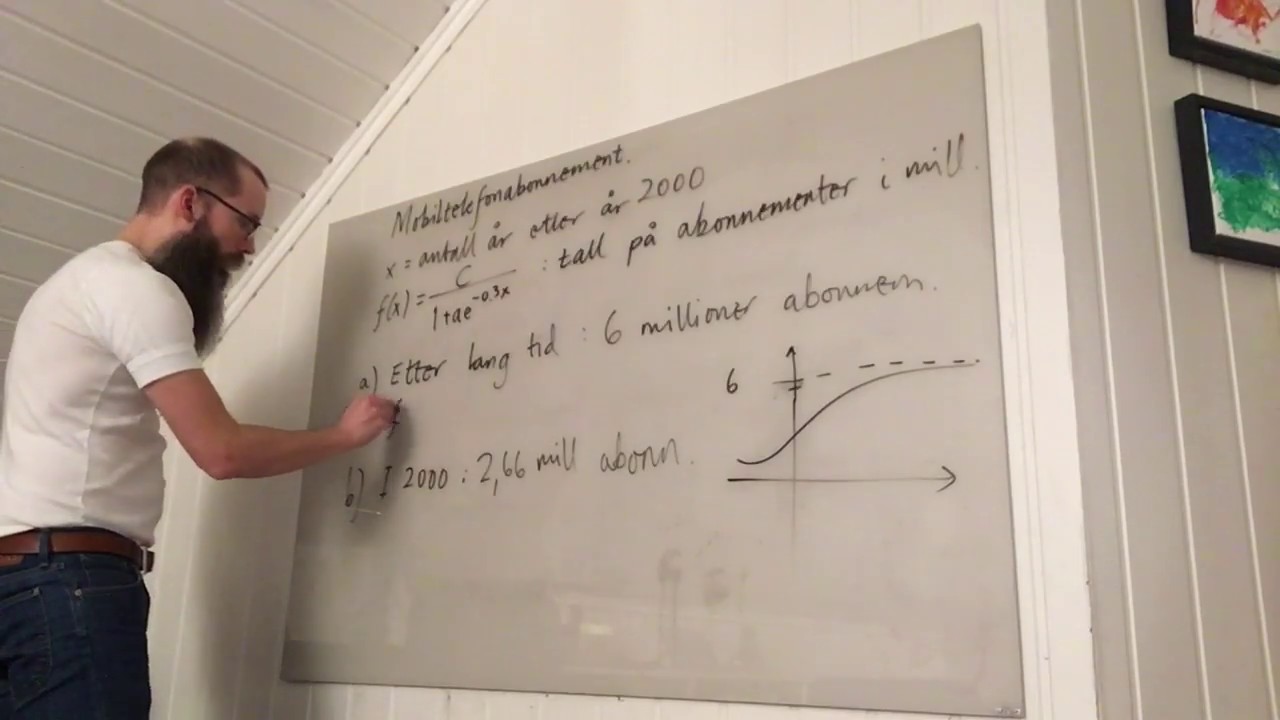 Mobiltelefonabonnement.
x = antall år etter år 2000
f(x) = C / 1+ae^-0.3x : tall på abonnementer i mill.
a) Etter lang tid : 6 millioner abonnem.
6
b) I 2000 : 2,66 mill abonn.